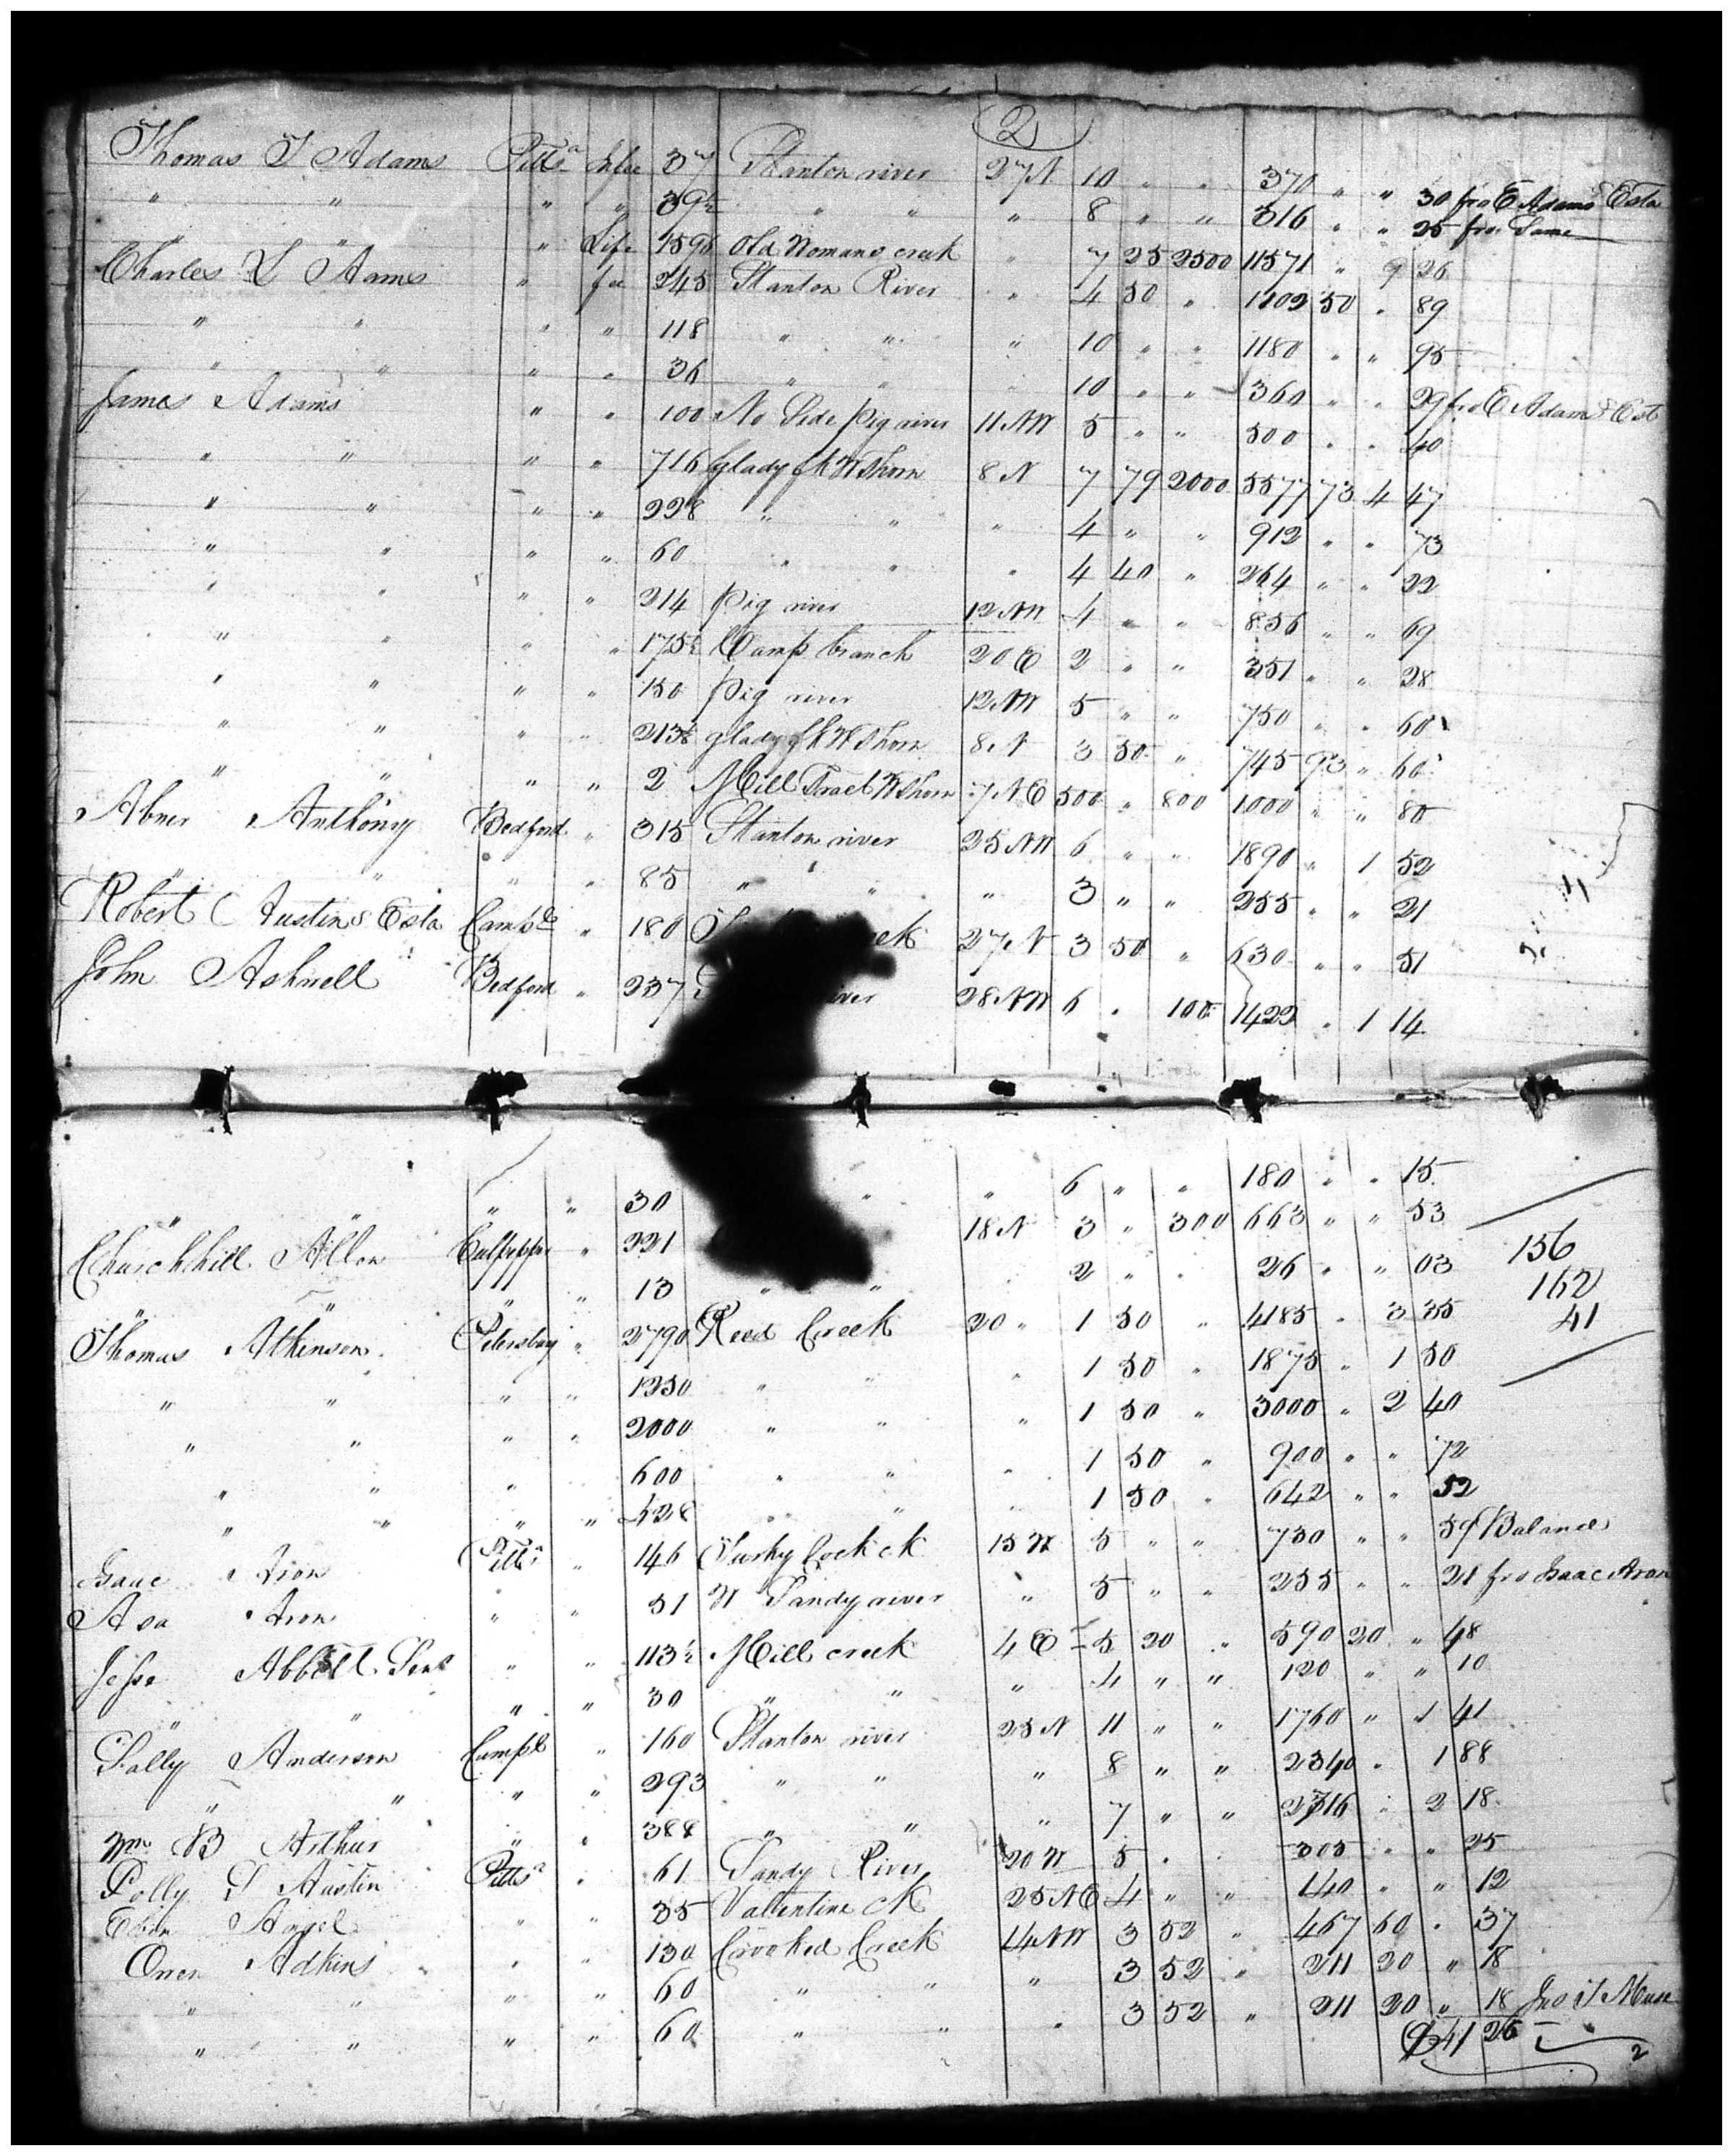 2
Thomas T Adams Pittsa In fee 37 Stanton river 27 N 10 " " 370 " " 30 fro E Adams' Esta
" " " " 39½ " " " 8 " " 316 " " 25 fro Same
" " " Life 1596 Old Womans creek " 7 25 2500 11571 " 9 26
Charles L Aams " fee 245 Stanton River " 4 50 " 1102 50 " 89
" " " " 118 " " " 10 " " 1180 " " 95
" " " " 36 " " " 10 " " 360 " " 29 fro E Adams' Est
James Adams " " 100 No Side Pig river 11 NW 5 " " 500 " " 40
" " " " 716 Glady fk W thorn 8 N 7 79 2000 5577 73 4 47
" " " " 228 " " " 4 " " 912 " " 73
" " " " 60 " " " 4 40 " 264 " " 22
" " " " 214 Pig river 12 NW 4 " " 856 " " 69
" " " " 175½ Camp branch 20 E 2 " " 351 " " 28
" " " " 150 Pig river 12 NW 5 " " 750 " " 60
" " " " 213 glady fk W thorn 8 N 3 50 " 745 93 " 60
" " " " 2 Mill Tract W thorn 7 NE 500 " 800 1000 " " 80
Abner Anthony Bedford " 315 Stanton river 25 NW 6 " " 1890 " 1 52
" " " " 85 " " " 3 " " 255 " " 21
Robert C Austin's Esta Campl " 180 27 N 3 50 " 630 " " 51
John Ashwell Bedford " 237 28 NW 6 " 100 1422 " 1 14
" " " " 30 " " 6 " " 180 " " 15
Churchhill Allen Culpepper " 221 18 N 3 " 300 663 " " 53
" " " " 13 " " " 2 " " 26 " " 03
156
162
41
Thomas Atkinson Petersbag " 2790 Reed Creek 20 " 1 50 " 4185 " 3 35
" " " " 1250 " " " 1 50 " 1875 " 1 50
" " " " 2000 " " " 1 50 " 3000 " 2 40
" " " " 600 " " " 1 50 " 900 " " 72
" " " " 428 " " " 1 50 " 642 " " 52
Isaac Aron Pittsa " 146 Turky Cock ck 15 W 5 " " 730 " " 59 Balance
Asa Aron " " 51 W Sandy river " 5 " " 255 " " 21 fro Isaac Aron
Jesse Abbott Senr " " 113½ Mill creek 4 E 5 20 " 590 20 " 48
" " " " 30 " " " 4 " " 120 " " 10
Sally Anderson Campl " 160 Stanton river 25 N 11 " " 1760 " 1 41
" " " " 293 " " " 8 " " 2340 " 1 88
Wm B Arthur " " 388 " " " 7 " " 2716 " 2 18
Polly S Austin Pittsa " 61 Sandy River 20 W 5 " " 305 " " 25
Angel " " 35 Vallentine ck 25 NE 4 " " 140 " " 12
Owen Adkins " " 130 Crooked Creek 14 NW 3 52 " 467 60 " 37
" " " " 60 " " " 3 52 " 211 20 " 18
" " " " 60 " " " 3 52 " 211 20 " 18 Jno T Muse
$41 26
2